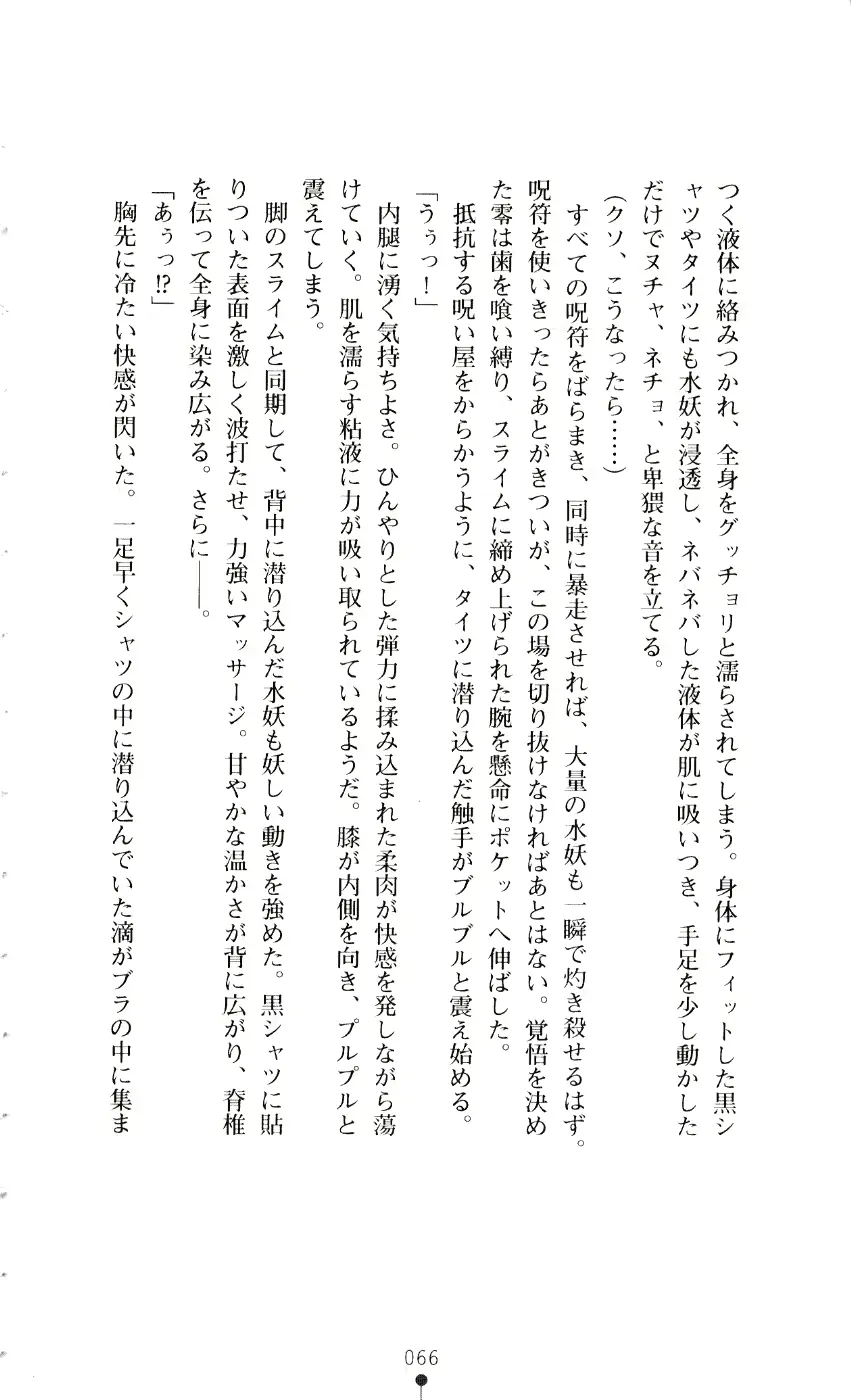 つく液体に絡みつかれ、全身をグッチョリと濡らされてしまう。身体にフィットした黒シ
ャツやタイツにも水妖が浸透し、ネバネバした液体が肌に吸いつき、手足を少し動かした
だけでヌチャ、ネチョ、と卑猥な音を立てる。
(クソ、こうなったら……)
　すべての呪符をばらまき、同時に暴走させれば、大量の水妖も一瞬で灼き殺せるはず。
呪符を使いきったらあとがきついが、この場を切り抜けなければあとはない。覚悟を決め
た零は歯を喰い縛り、スライムに締め上げられた腕を懸命にポケットへ伸ばした。
　抵抗する呪い屋をからかうように、タイツに潜り込んだ触手がブルブルと震え始める。
「うぅっ！」
　内腿に湧く気持ちよさ。ひんやりとした弾力に揉み込まれた柔肉が快感を発しながら蕩
けていく。肌を濡らす粘液に力が吸い取られているようだ。膝が内側を向き、プルプルと
震えてしまう。
　脚のスライムと同期して、背中に潜り込んだ水妖も妖しい動きを強めた。黒シャツに貼
りついた表面を激しく波打たせ、力強いマッサージ。甘やかな温かさが背に広がり、脊椎
を伝って全身に染み広がる。さらに――。
「あぅっ!?」
　胸先に冷たい快感が閃いた。一足早くシャツの中に潜り込んでいた滴がブラの中に集ま
066